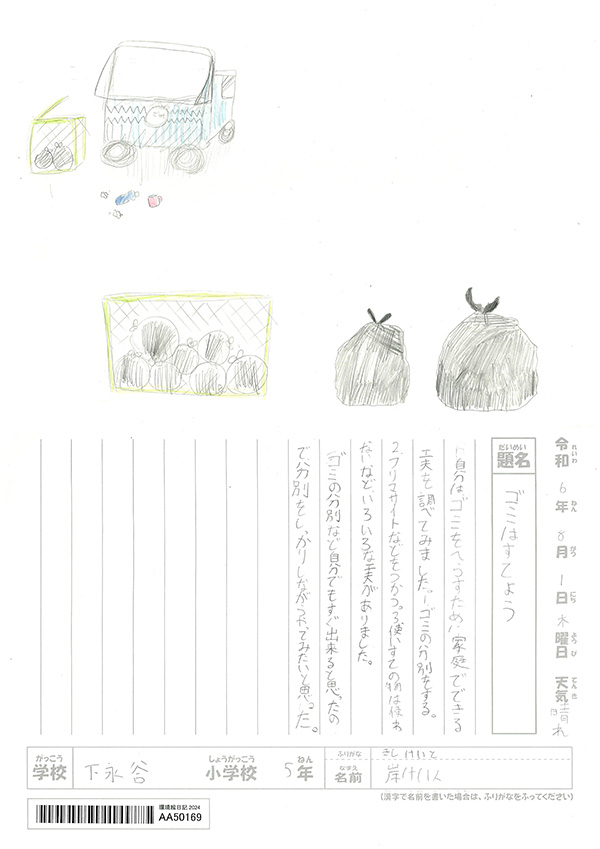 令和6年8月1日木曜日 天気晴れ
れいわ ねん がつ にち ようび てんき
だいめい
題名 ゴミはすてよう
自分はゴミをへらすために家庭でできる
工夫を調べてみました。1ゴミの分別をする。
2フリマサイトなどをつかう。3使いすての物は使わ
ないなどいろいろな工夫がありました。
ゴミの分別など自分でもすぐ出来ると思ったの
で、分別をしっかりしながらやってみたいと思った。
がっこう しょうがっこう ねん
学校 下永谷 小学校 5年
ふりがな きし けいと
なまえ
名前 岸けいと
(漢字で名前を書いた場合は、ふりがなをふってください)
環境絵日記 2024
AA50169